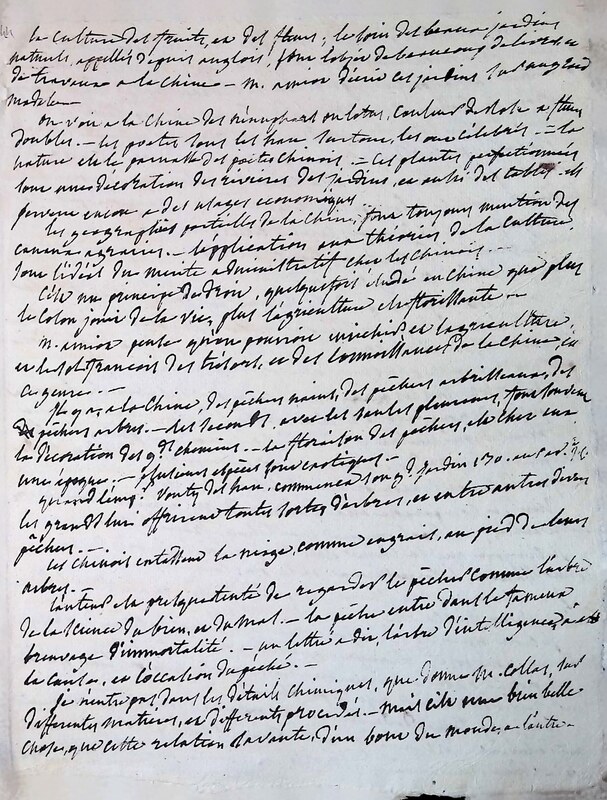 la culture des fruits, et des fleurs; le soin des beaux jardins
naturels, appellés depuis anglois, font l'objet de beaucoup de livres, et
de travaux a la chine — m. amiot décrit ces jardins sur un grand
modele —
on voit a la chine des nénuphars ou lotus, couleur de rose a fleurs
doubles. — les poetes tous les ont surtout, celebrés. — la
nature est le parnasse des poetes chinois. — ces plantes perfectionnées
sont une décoration des rivieres des jardins, et aussi des tables. et
servent encore a des usages economiques.
les geographies partielles de la chine, font toujours mention des
canaux agraires. — l'application aux théories de la culture
sont l'idéal du merite administratif chez les chinois. —
c'est un principe de droit, quelquefois éludé en chine que plus
le colon jouit de la vie, plus l'agriculture est florissante. —
m. amiot pense qu'on pourroit enrichir et l'agriculture,
et le sol françois des trésors, et des connoissances de la chine, en
ce genre. —
il y a a la chine, des pêchers nains, des pêchers arbrisseaux, des
pêchers arbres. — les seconds, avec les saules pleureurs, font souvent
la décoration des gds chemins. — la floraison des pêchers, est chez eux
une époque. — plusieurs especes sont exotiques. —
quand l'empr. vouty des han, commença son gd jardin 130. ans av. J. C.
les grands lui offrirent toutes sortes d'arbres, et entre autres divers
pêchers. —
les chinois entassent la neige, comme engrais, au pied de leurs
arbres. —
l'auteur est presque tenté de regarder le pêcher comme l'arbre
de la science du bien, et du mal. — la pêche entre dans le fameux
breuvage d'immortalité. — un lettré a dit, l'arbre d'intelligence
la cause, et l'occasion du péché. —
je n'entre pas dans les détails chimiques, que donne m. collas, sur
differentes matieres, et differents procédés — mais c'est une bien belle
chose, que cette relation savante, d'un bout du monde, a l'autre. —